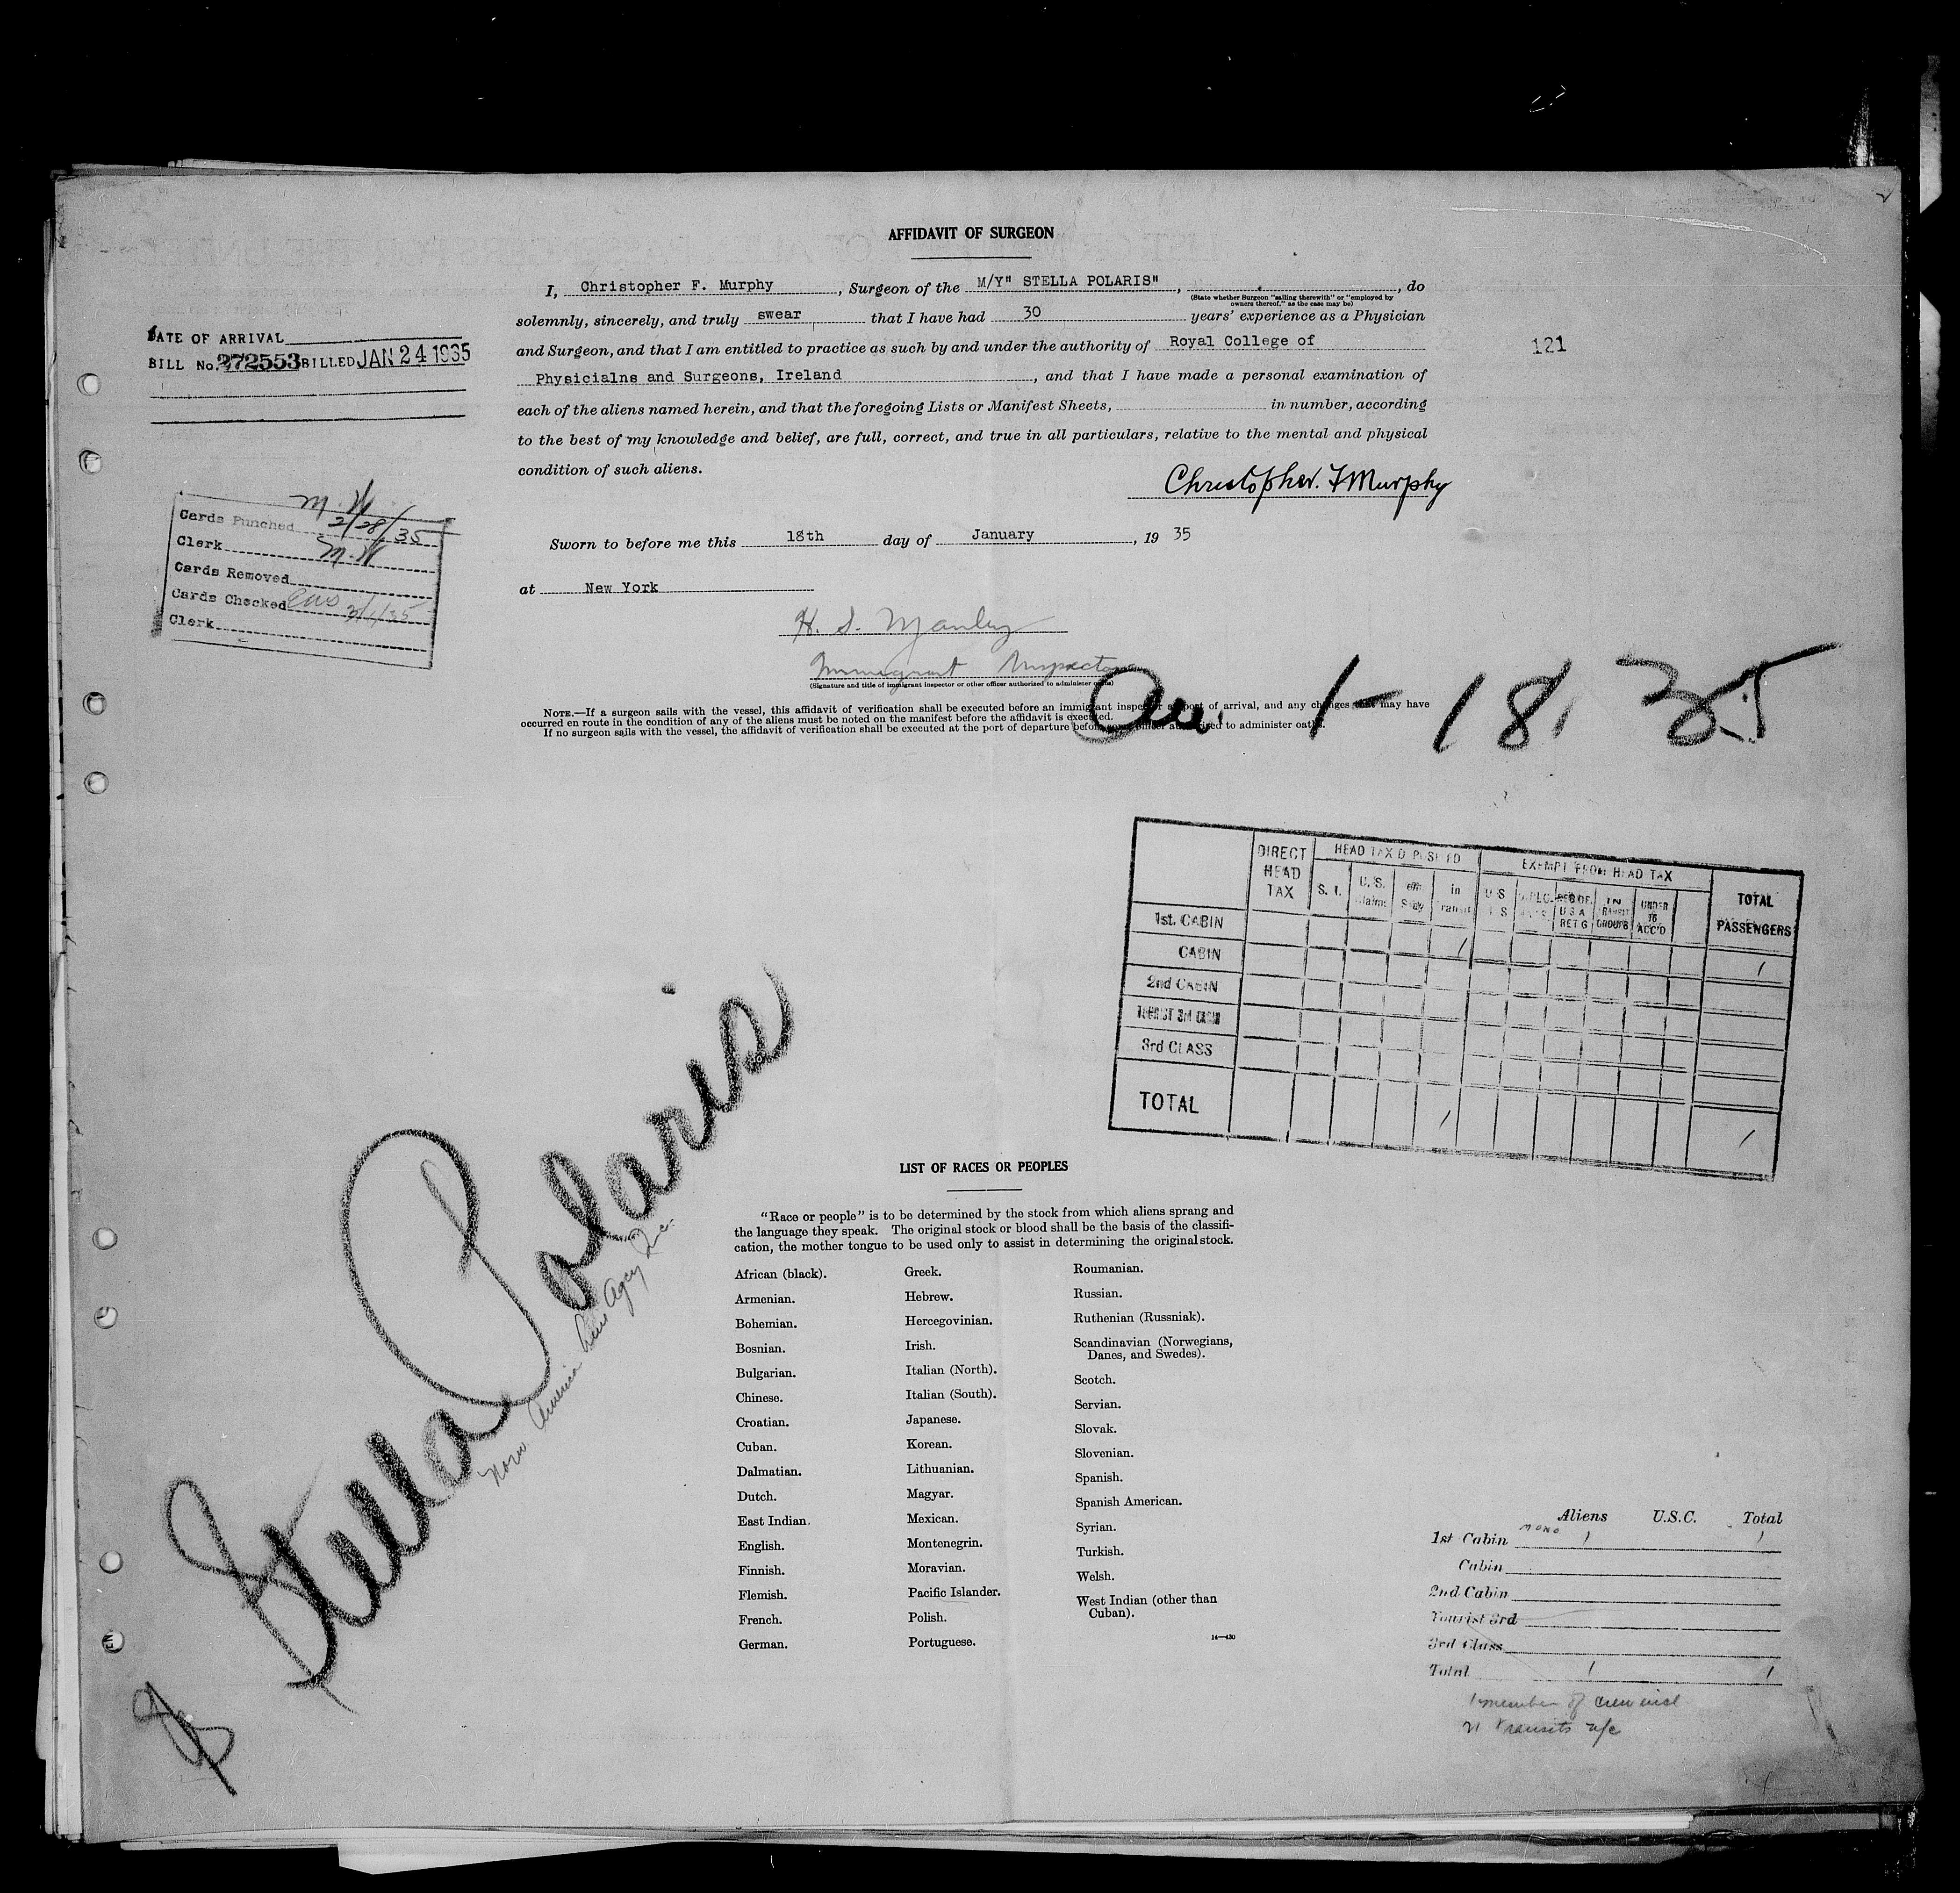 AFFIDAVIT OF SURGEON
I, Christopher F. Murphy, Surgeon of the M/Y" STELLA POLARIS", , do
(State whether Surgeon "sailing therewith" or "employed by
owners thereof," as the case may be)
solemnly, sincerely, and truly swear that I have had 30 years' experience as a Physician
and Surgeon, and that I am entitled to practice as such by and under the authority of Royal College of
Physicialns and Surgeons, Ireland, and that I have made a personal examination of
each of the aliens named herein, and that the foregoing Lists or Manifest Sheets, in number, according
to the best of my knowledge and belief, are full, correct, and true in all particulars, relative to the mental and physical
condition of such aliens.
Christopher. F Murphy
DATE OF ARRIVAL
BILL No. 272553 BILLED JAN 24 1935
121
M. W.
Cards Punched 2/28/35
Clerk M. W
Cards Removed
Cards Checked 3/1/35
Clerk
Sworn to before me this 18th day of January, 19 35
at New York
H. S. Manley
Immigrant Inspector
(Signature and title of immigrant inspector or other officer authorized to administer oaths)
NOTE.—If a surgeon sails with the vessel, this affidavit of verification shall be executed before an immigrant inspector at port of arrival, and any changes that may have
occurred en route in the condition of any of the aliens must be noted on the manifest before the affidavit is executed.
If no surgeon sails with the vessel, the affidavit of verification shall be executed at the port of departure before some officer authorized to administer oaths.
Arr. 1-18, 35
DIRECT HEAD TAX
HEAD TAX DEPOSITED
EXEMPT FROM HEAD TAX
TOTAL PASSENGERS
S. I. U.S. Claims in Transit U S UNDER 16 ACC'D
REG OF U S A RET G IN TRANSIT GROUPS
1st. CABIN
CABIN 1 1
2nd CABIN
TOURIST 3rd CABIN
3rd CLASS
TOTAL 1 1
Stella Polaris
Norw America Line Agcy Inc.
LIST OF RACES OR PEOPLES
"Race or people" is to be determined by the stock from which aliens sprang and
the language they speak. The original stock or blood shall be the basis of the classifi-
cation, the mother tongue to be used only to assist in determining the original stock.
African (black).
Armenian.
Bohemian.
Bosnian.
Bulgarian.
Chinese.
Croatian.
Cuban.
Dalmatian.
Dutch.
East Indian.
English.
Finnish.
Flemish.
French.
German.
Greek.
Hebrew.
Hercegovinian.
Irish.
Italian (North).
Italian (South).
Japanese.
Korean.
Lithuanian.
Magyar.
Mexican.
Montenegrin.
Moravian.
Pacific Islander.
Polish.
Portuguese.
Roumanian.
Russian.
Ruthenian (Russniak).
Scandinavian (Norwegians,
Danes, and Swedes).
Scotch.
Servian.
Slovak.
Slovenian.
Spanish.
Spanish American.
Syrian.
Turkish.
Welsh.
West Indian (other than
Cuban).
14—430
Aliens U.S.C. Total
1st Cabin 1 1
Cabin
2nd Cabin
Tourist 3rd
3rd Class
Total 1 1
1 member of crew incl
21 transits